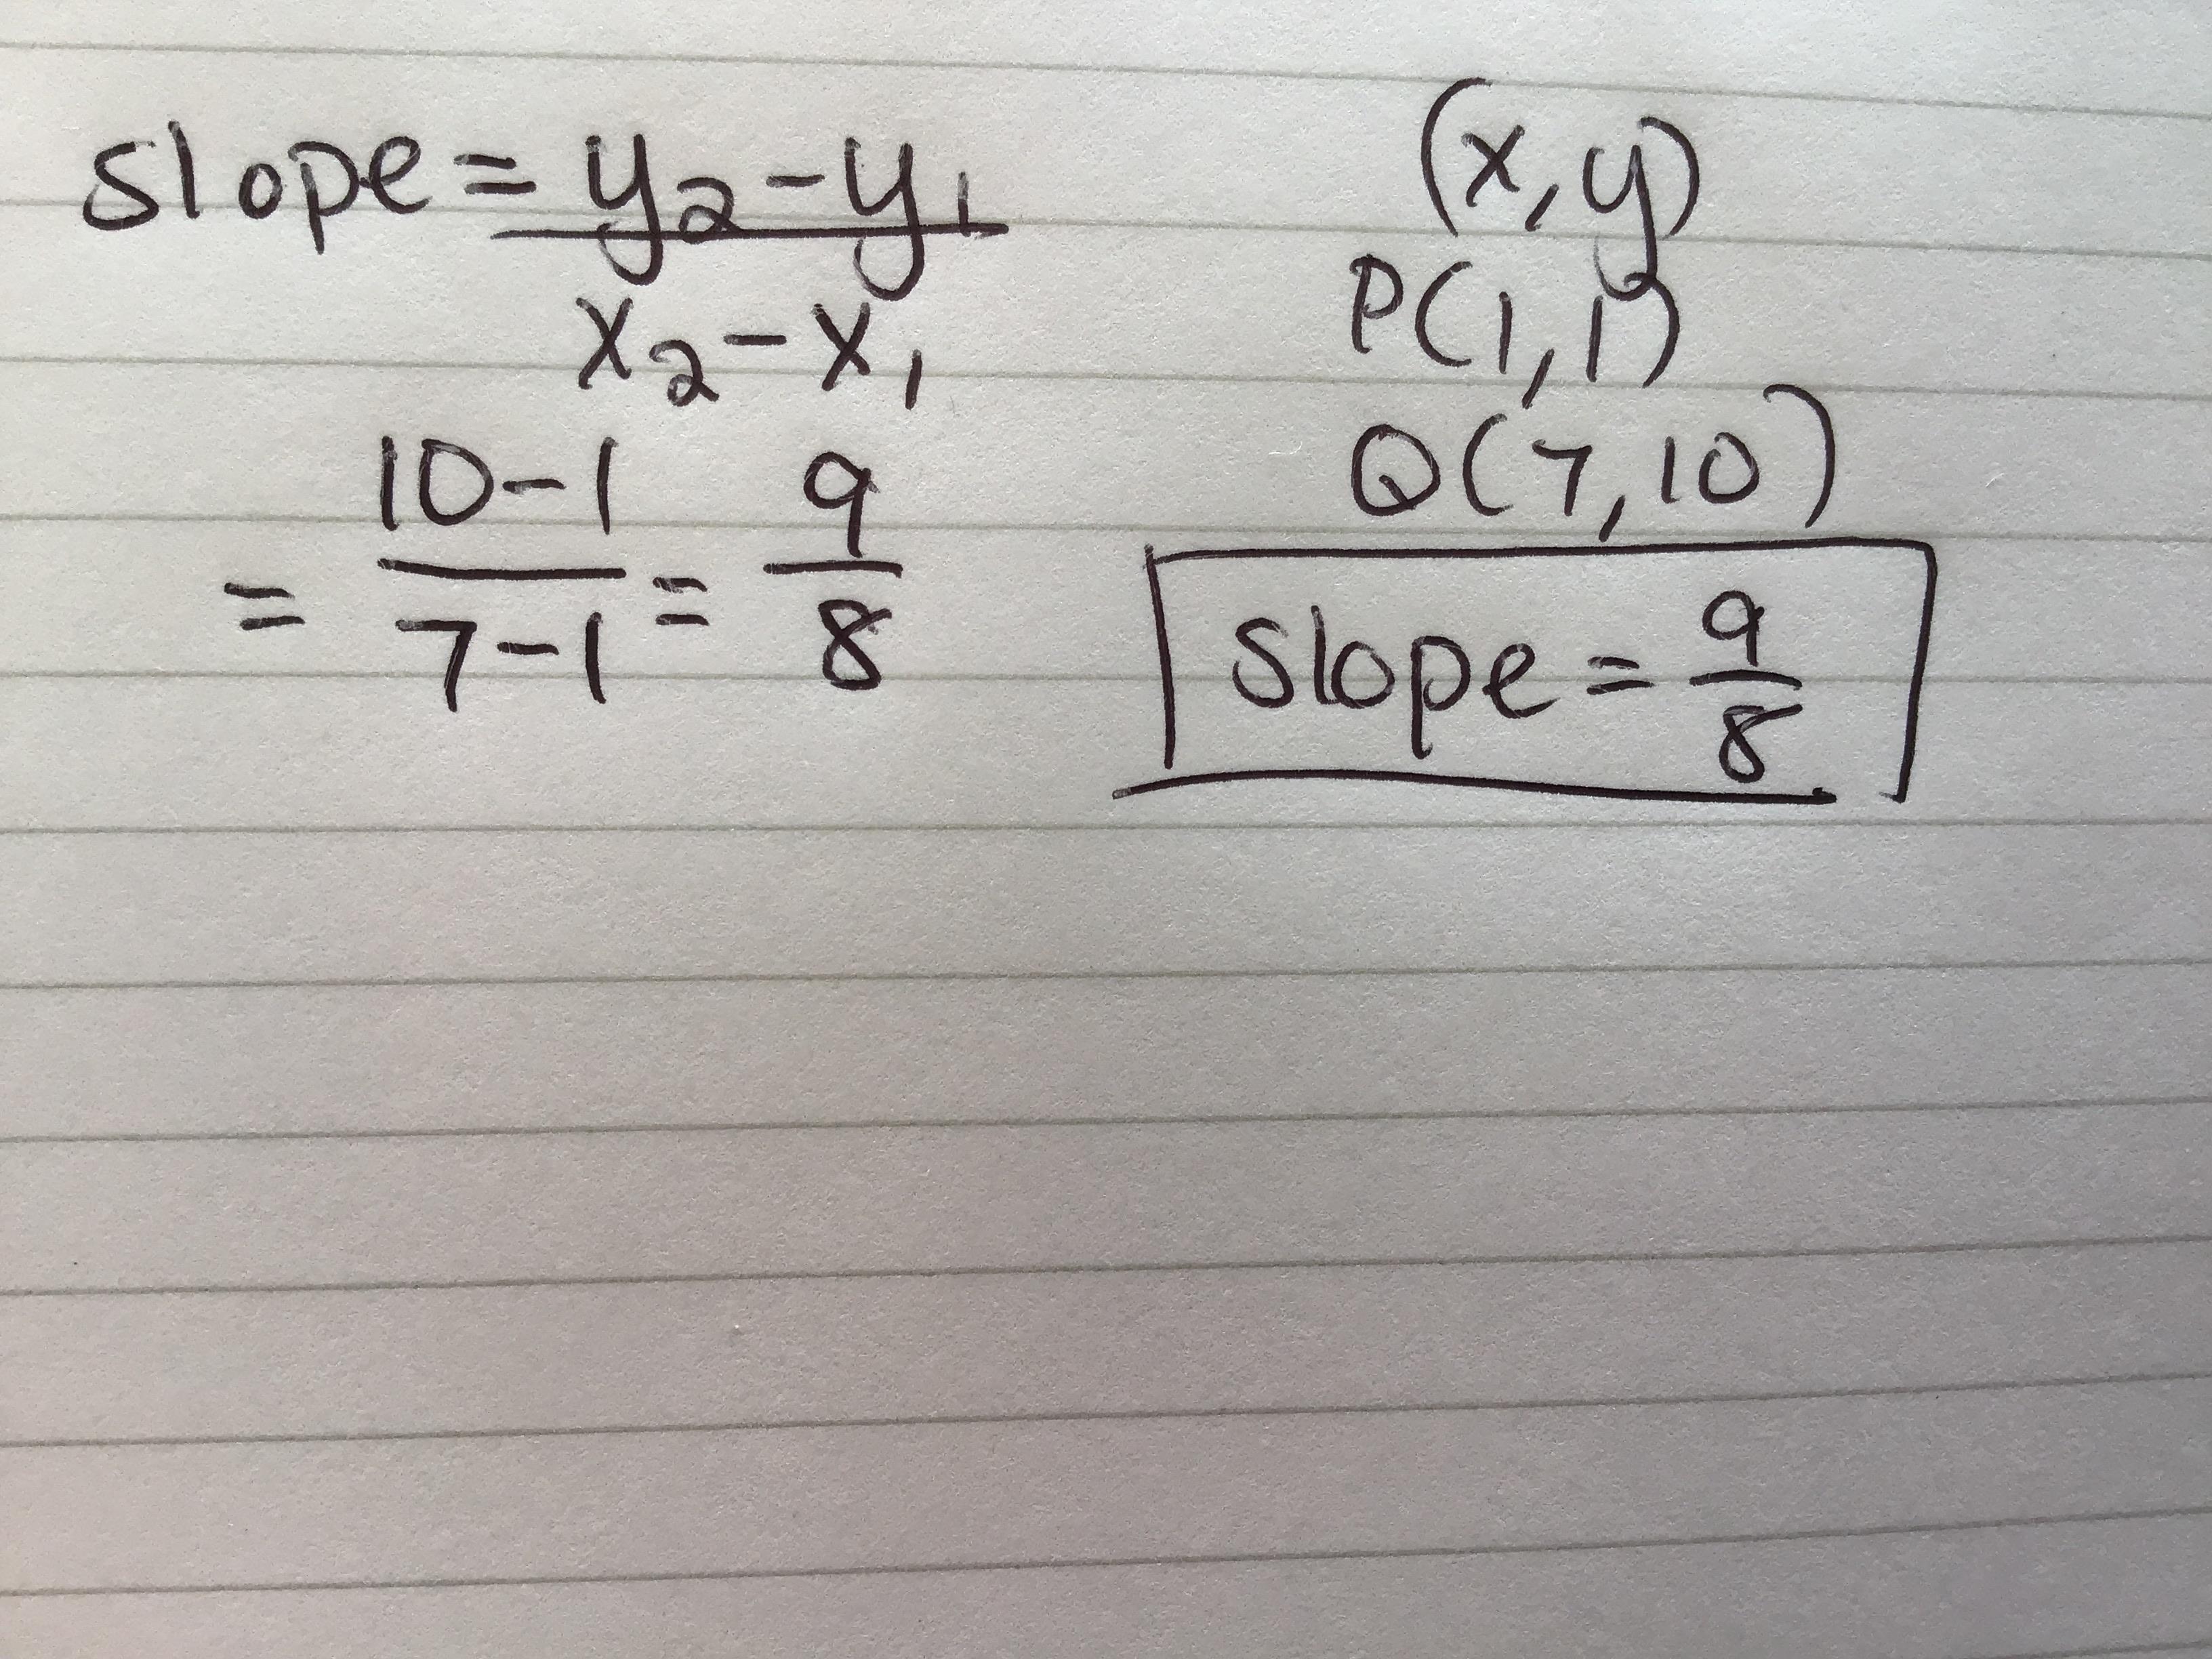 slope = y₂ - y₁
x₂ - x₁
= 10 - 1 = 9
7 - 1 8
(x, y)
P(1, 1)
Q(7, 10)
slope = 9
8